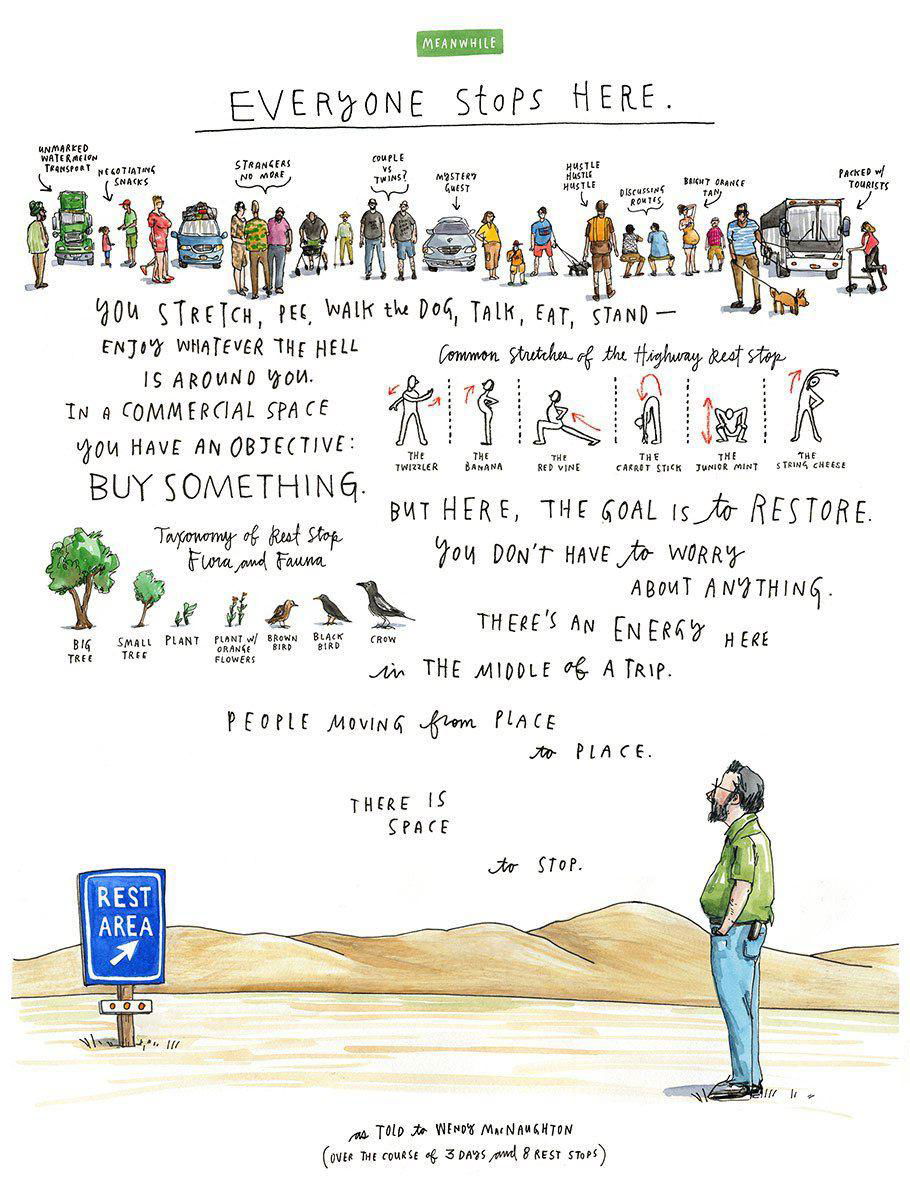 MEANWHILE
EVERYONE STOPS HERE.
UNMARKED
WATERMELON
TRANSPORT
NEGOTIATING
SNACKS
STRANGERS
NO MORE
COUPLE
VS
TWINS?
MYSTERY
GUEST
HUSTLE
HUSTLE
HUSTLE
DISCUSSING
ROUTES
BRIGHT ORANGE
TAN
PACKED W/
TOURISTS
YOU STRETCH, PEE, WALK the DOG, TALK, EAT, STAND —
ENJOY WHATEVER THE HELL
IS AROUND YOU.
IN A COMMERCIAL SPACE
YOU HAVE AN OBJECTIVE:
BUY SOMETHING.
Common Stretches of the Highway Rest Stop
THE
TWIZZLER
THE
BANANA
THE
RED VINE
THE
CARROT STICK
THE
JUNIOR MINT
THE
STRING CHEESE
BUT HERE, THE GOAL IS to RESTORE.
YOU DON'T HAVE to WORRY
ABOUT ANYTHING.
Taxonomy of Rest Stop
Flora and Fauna
BIG
TREE
SMALL
TREE
PLANT
PLANT W/
ORANGE
FLOWERS
BROWN
BIRD
BLACK
BIRD
CROW
THERE'S AN ENERGY HERE
in THE MIDDLE of A TRIP.
PEOPLE MOVING from PLACE
to PLACE.
THERE IS
SPACE
to STOP.
REST
AREA
as TOLD to WENDY MACNAUGHTON
(OVER THE COURSE of 3 DAYS and 8 REST STOPS)